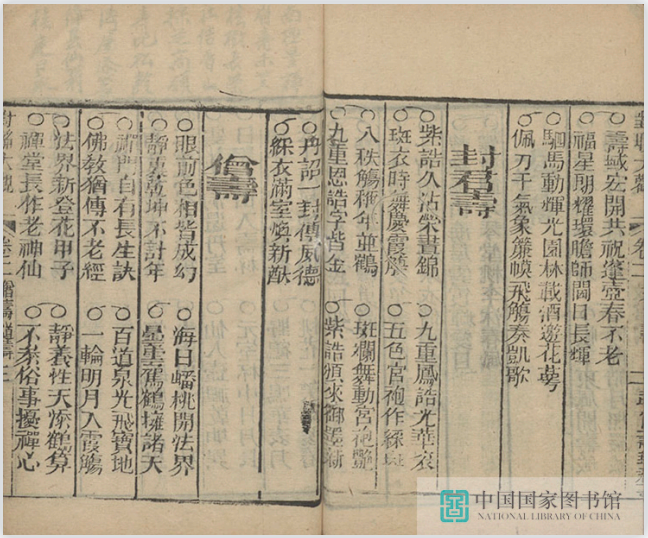 對聯大觀 卷二
○壽域宏開共祝蓬壺春不老
○福星朗耀環瞻師閫日長輝
○駟馬動輝光園林載酒邀花萼
○佩刀干氣象簾幙飛觴奏凱歌
封君壽
○紫誥久沾榮晝錦 ○九重鳳誥光華袞
○斑衣時舞慶霞觴 ○五色宮袍作綵斑
○八秩觴稱年並鶴 ○斑斕舞動宮袍艷
○九重恩誥字皆金 ○紫誥頒來御墨新
○丹詔一封傳鳳德
○綵衣滿室煥新猷
僧壽
○眼前色相皆成幻 ○海日蟠桃開法界
○靜裏乾坤不計年 ○曇雲鸞鶴擁諸天
○禪門自有長生訣 ○百道泉光飛寶地
○佛教猶傳不老經 ○一輪明月入霞觴
○法界新登花甲子 ○靜養性天添鶴算
○禪堂長作老神仙 ○不奈俗事擾禪心
對聯大觀 卷二
中国国家图书馆
NATIONAL LIBRARY OF CHINA